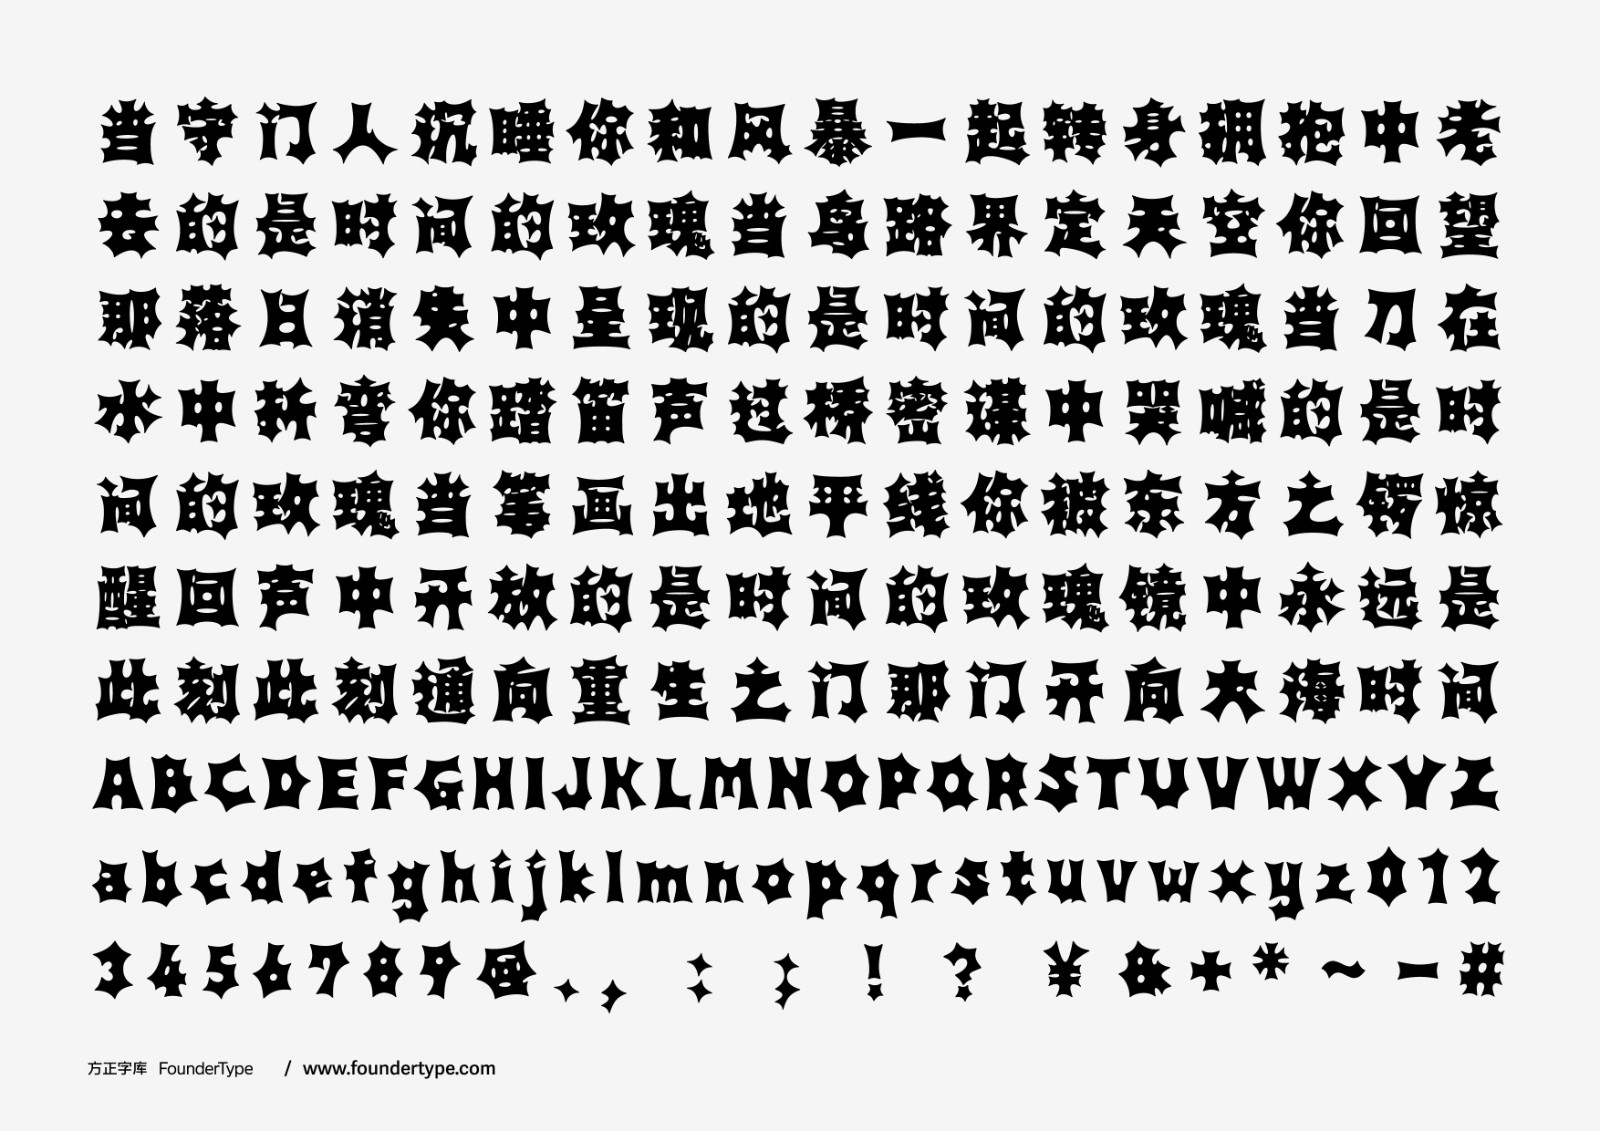 当守门人沉睡你和风暴一起转身拥抱中老
去的是时间的玫瑰当鸟路界定天空你回望
那落日消失中呈现的是时间的玫瑰当刀在
水中折弯你踏笛声过桥密谋中哭喊的是时
间的玫瑰当笔画出地平线你被东方之锣惊
醒回声中开放的是时间的玫瑰镜中永远是
此刻此刻通向重生之门那门开向大海时间
ABCDEFGHIJKLMNOPQRSTUVWXYZ
abcdefghijklmnopqrstuvwxyz012
3456789@.,:;!?¥&+*~-#
方正字库 FounderType / www.foundertype.com